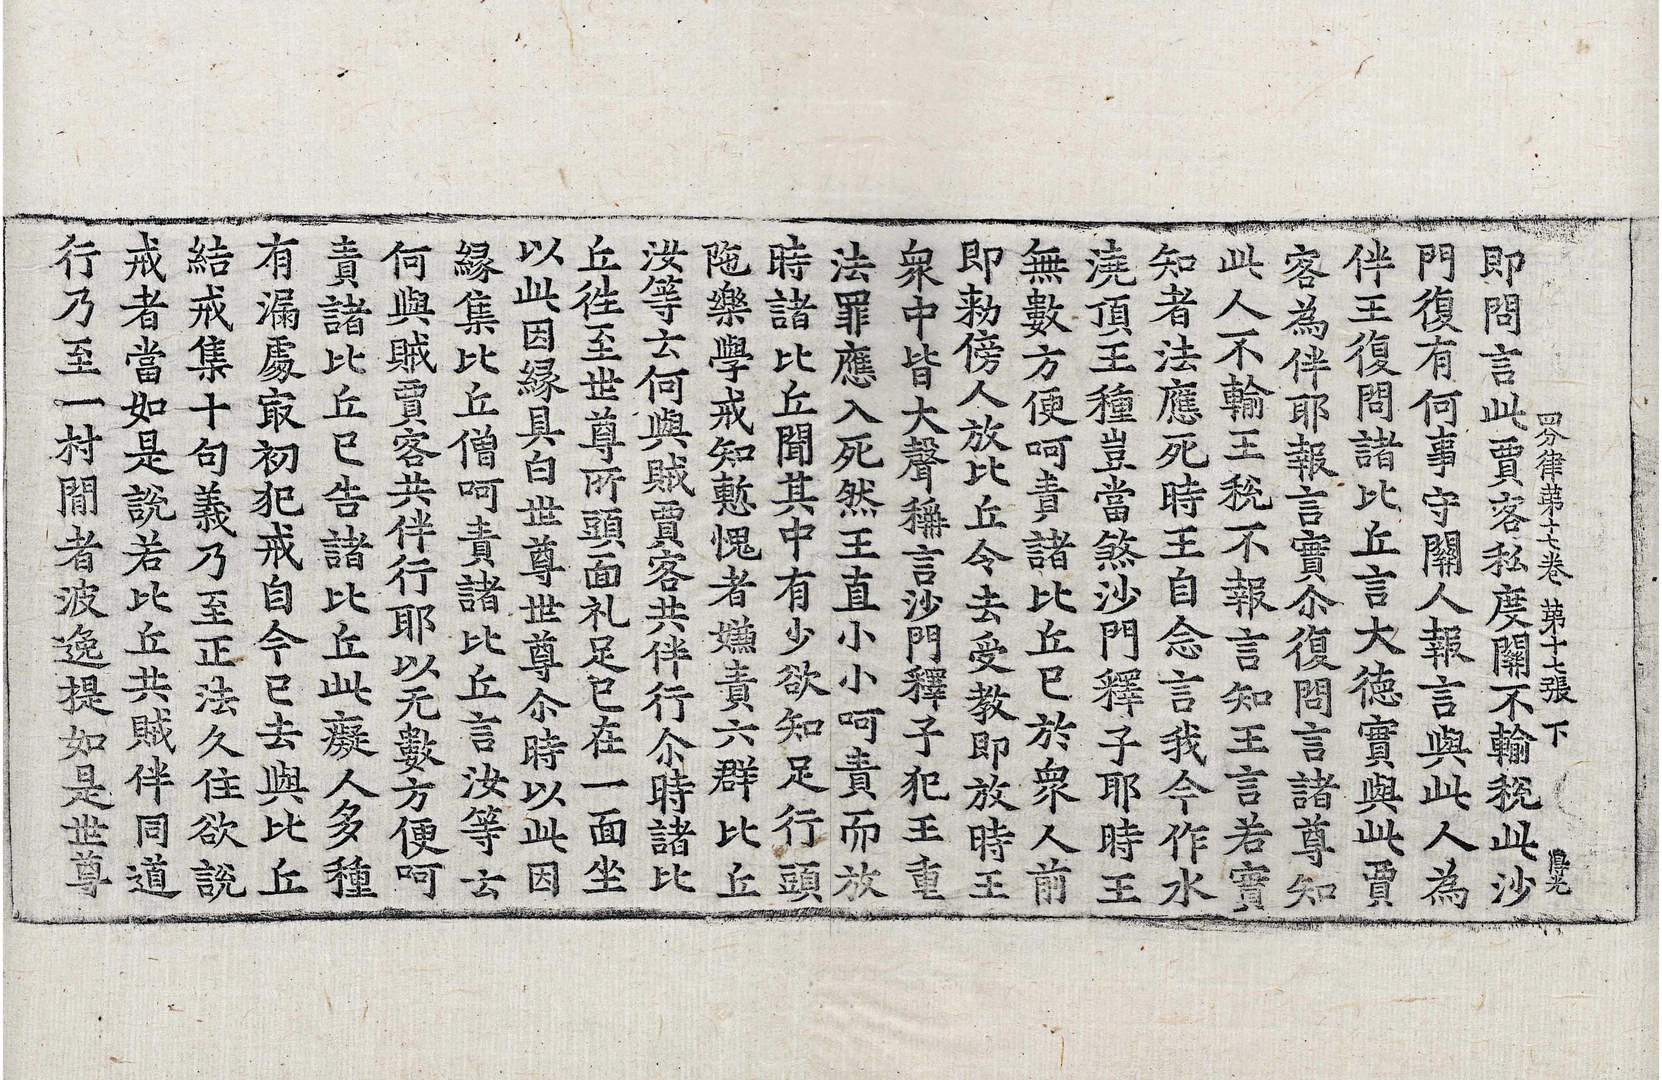 四分律第十七卷 第十七張 下
即問言此賈客私度關不輸稅此沙
門復有何事守關人報言與此人為
伴王復問諸比丘言大德實與此賈
客為伴耶報言實尒復問言諸尊知
此人不輸王稅不報言知王言若實
知者法應死時王自念言我今作水
澆頂王種豈當煞沙門釋子耶時王
無數方便呵責諸比丘已於衆人前
即勑傍人放比丘令去受教即放時王
衆中皆大聲稱言沙門釋子犯王重
法罪應入死然王直小小呵責而放
時諸比丘聞其中有少欲知足行頭
陁樂學戒知慙愧者嫌責六群比丘
汝等云何與賊賈客共伴行尒時諸比
丘徃至世尊所頭面礼足已在一面坐
以此因緣具白世尊世尊尒時以此因
緣集比丘僧呵責諸比丘言汝等云
何與賊賈客共伴行耶以无數方便呵
責諸比丘已告諸比丘此癡人多種
有漏處㝡初犯戒自今已去與比丘
結戒集十句義乃至正法久住欲說
戒者當如是說若比丘共賊伴同道
行乃至一村間者波逸提如是世尊